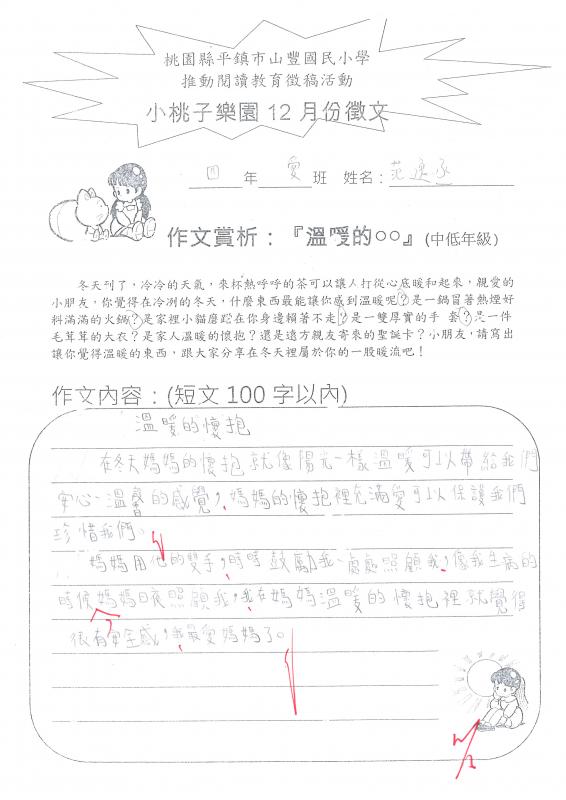 桃園縣平鎮市山豐國民小學
推動閱讀教育徵稿活動
小桃子樂園 12 月份徵文
四年愛班 姓名：范逸丞
作文賞析：『溫暖的○○』(中低年級)
冬天到了，冷冷的天氣，來杯熱呼呼的茶可以讓人打從心底暖和起來，親愛的
小朋友，你覺得在冷冽的冬天，什麼東西最能讓你感到溫暖呢？是一鍋冒著熱煙好
料滿滿的火鍋？是家裡小貓磨蹭在你身邊賴著不走？是一雙厚實的手 套？是一件
毛茸茸的大衣？是家人溫暖的懷抱？還是遠方親友寄來的聖誕卡？小朋友，請寫出
讓你覺得溫暖的東西，跟大家分享在冬天裡屬於你的一股暖流吧！
作文內容：(短文 100 字以內)
溫暖的懷抱
在冬天媽媽的懷抱就像陽光一樣溫暖可以帶給我們
安心、溫馨的感覺，媽媽的懷抱裡充滿愛可以保護我們
珍惜我們。
媽媽用他的雙手，時時鼓勵我、處處照顧我，像我生病的
時候媽媽日夜照顧我，我在媽媽溫暖的懷抱裡就覺得
很有安全感，我最愛媽媽了。